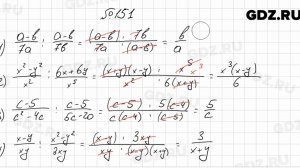 GDZ.RU
№151
(a-b)/7a : (a-b)/7b = (a-b)/7a · 7b/(a-b) = b/a
(x²-y²)/x² : (6x+6y)/x⁵ = (x+y)(x-y)/x² · x⁵/6(x+y) = x³(x-y)/6
(c-5)/(c²-4c) : (c-5)/(5c-20) = (c-5)/c(c-4) · 5(c-4)/(c-5) = 5/c
(x-y)/xy : (x²-y²)/3xy = (x-y)/xy · 3xy/(x-y)(x+y) = 3/(x+y)
GDZ.RU